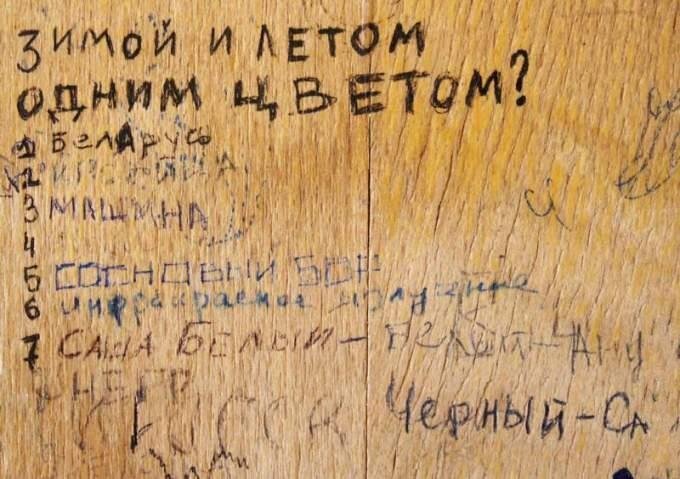 ЗИМОЙ И ЛЕТОМ
ОДНИМ ЦВЕТОМ?
1 БЕЛАРУСЬ
2
3 МАШИНА
4
5 СОСНОВЫЙ БОР
6 инфракрасное излучение
7 САША БЕЛЫЙ –
НЕГР
ЧЕРНЫЙ – СА